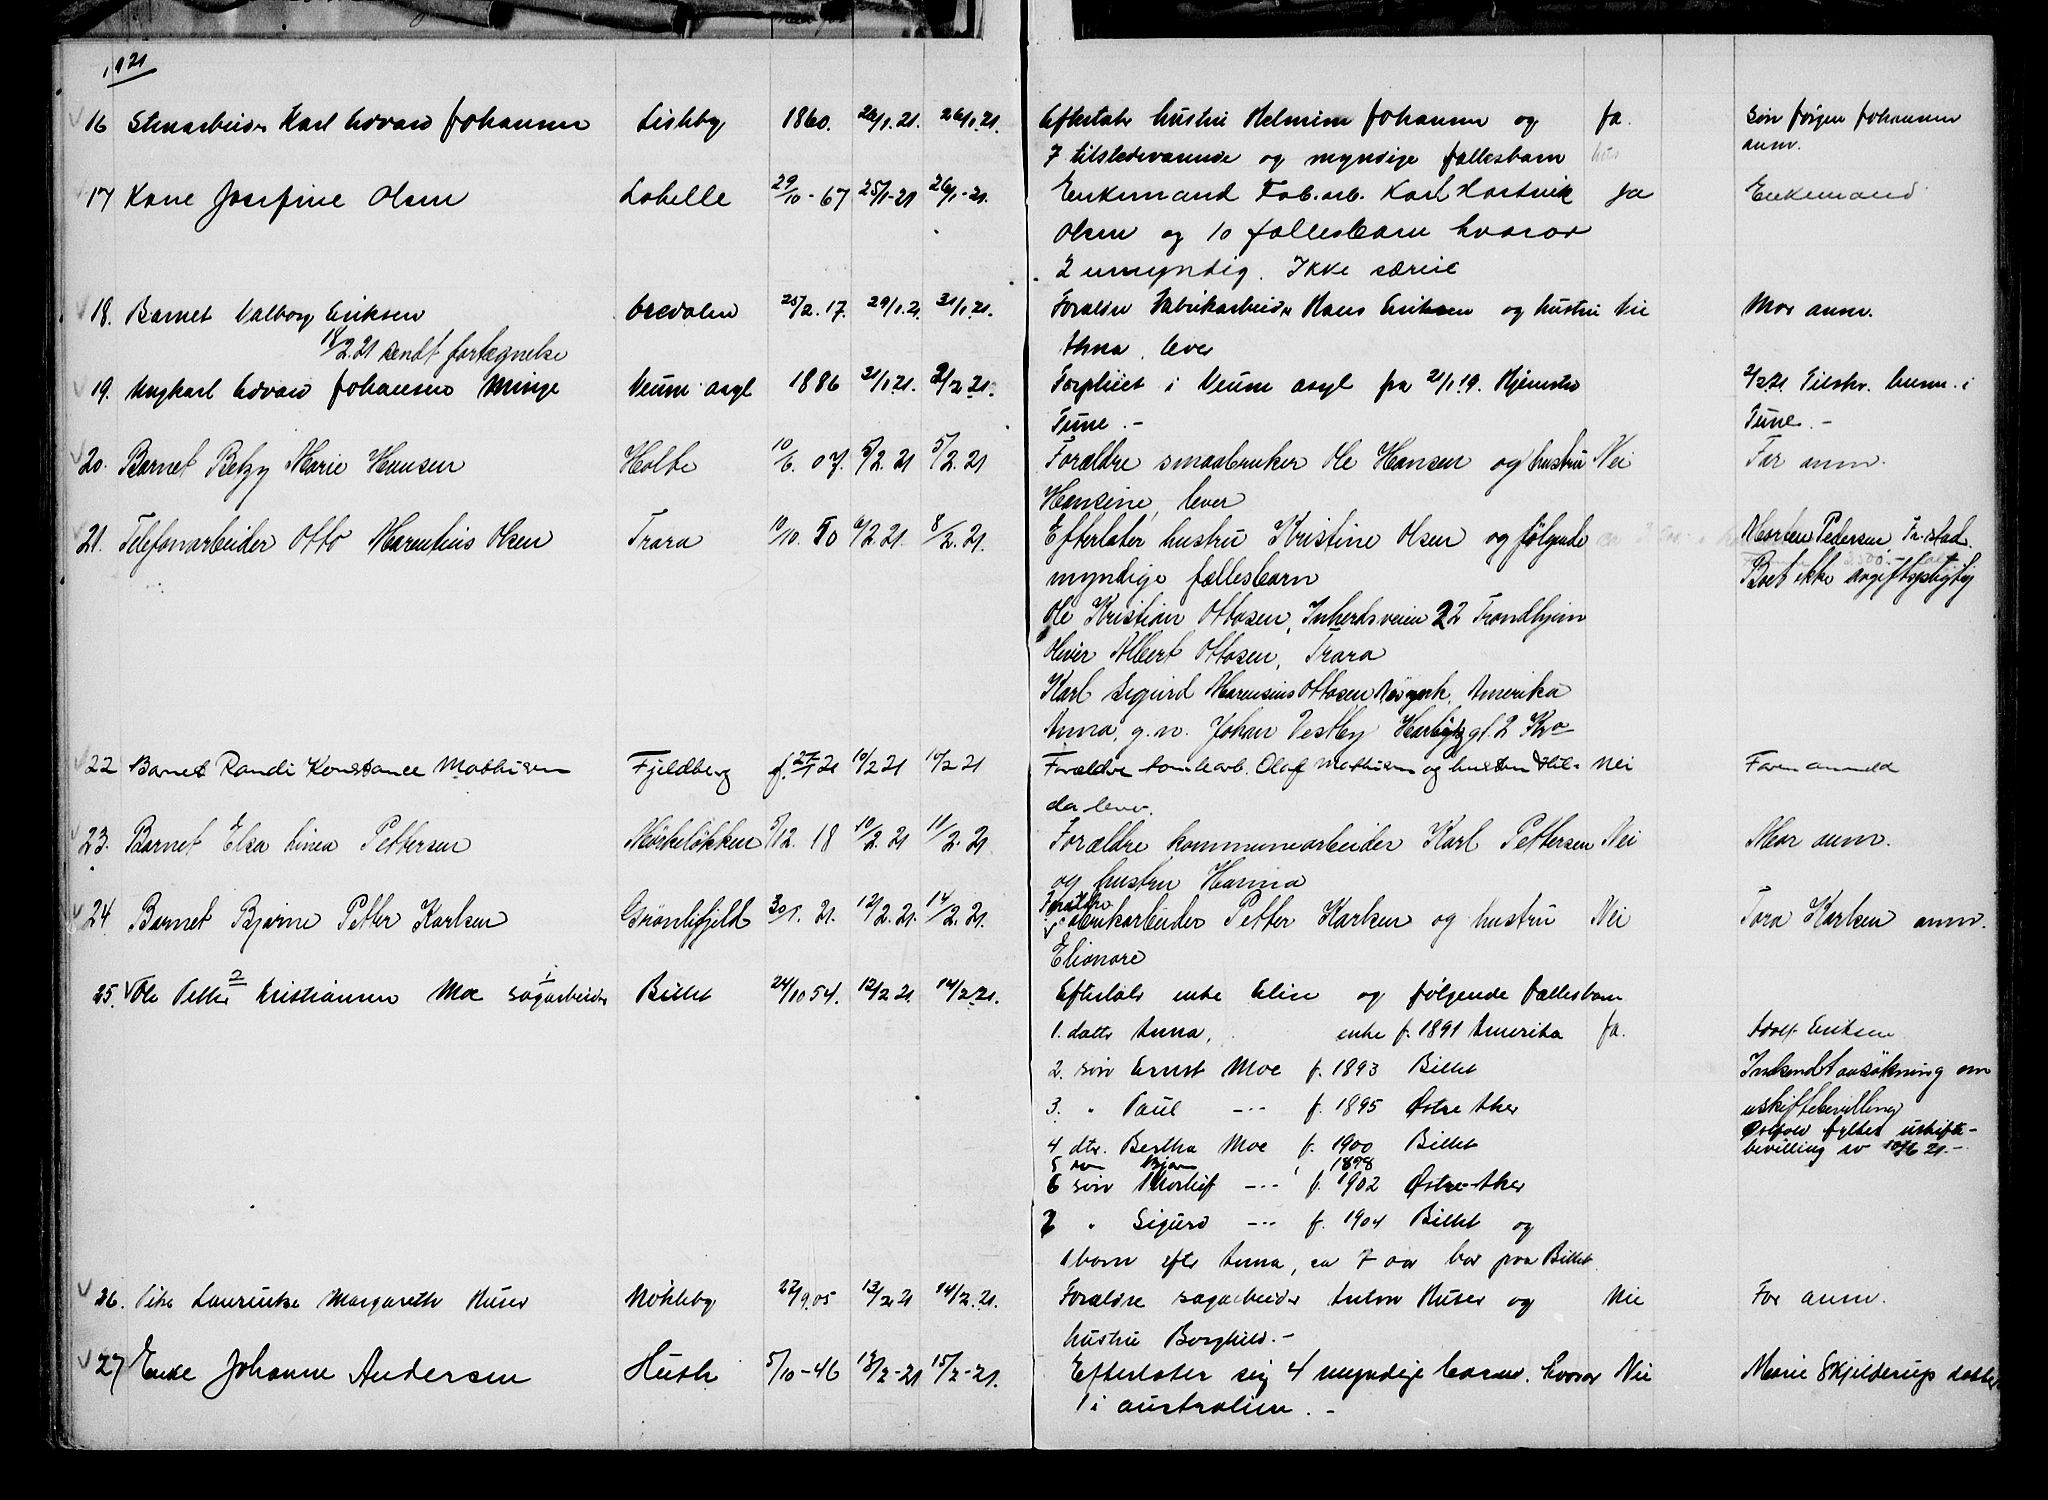 1921
16 Stenarbeider Karl Edvard Johansen Lisleby 1860. 26/1.21. 26/1.21. Efterlater hustru Helmine Johansen og Ja. Søn Jørgen Johansen
7 tilstedeværende og myndige fællesbarn anm.
17 Kone Josefine Olsen Labelle 29/10-67 25/1-21 26/1-21. Enkemand Fab.arb. Karl Hartvik Ja Enkemand
Olsen og 10 fællesbarn hvorav
2 umyndig. Ikke særeie
18. Barnet Valborg Eriksen Oredalen 25/2.17. 29/1.21. 31/1.21. Forældre Fabrikarbeider Hans Eriksen og hustru Nei Mor anm.
18/2.21 sendt fortegnelse Thea, lever
19. Ungkarl Edvard Johansen Minge Veum asyl 1886 21/1.21. 2/2.21. Forpleiet i Veum asyl fra 21/1.19. Hjemsted 2/2.21. Tilskr. lensm. i
Tune.- Tune.-
20. Barnet Betzy Marie Hansen Holte 10/6.07. 5/2.21 5/2.21 Forældre smaabruker Ole Hansen og hustru Nei Far anm.
Hansine, lever
21. Telefonarbeider Otto Marentius Olsen Trara 10/10.50 6/2.21. 8/2.21. Efterlater hustru Kristine Olsen og følgende Morten Pedersen Fr.stad.
myndige fællesbarn Boet ikke avgiftspligtig
Ole Kristian Ottosen, Inherdsveien 22 Trondhjem
Oliver Albert Ottosen, Trara
Karl Sigurd Marensius Ottosen Amerika
Anna, g.m. Johan Vestby gt. 2 Kra
22 Barnet Randi Konstance Mathisen Fjeldberg f. 27/1 21 10/2 21 10/2 21 Forældre tomtearb. Olaf Mathisen og hustru Hil- Nei Faren anmeld
da lever.
23. Barnet Elsa Linea Pettersen Mørkeløkken 5/12.18 10/2.21 11/2.21 Forældre kommunearbeider Karl Pettersen Nei Mor anm.
og hustru Hanna
24 Barnet Bjarne Petter Karlsen Grønlifjeld 30/1.21. 12/2.21. 14/2.21. Forældre Petter Karlsen og hustru Nei Tora Karlsen anm.
Elionore
25. Ole Petter 2 Kristiansen Moe 1 sagarbeider Billet 24/10 54. 12/2 21. 14/2 21. Efterlater enke Elise og følgende fællesbarn
1. datter Anna, enke f. 1891 Amerika Ja. Adolf Eriksen
2. søn Ernst Moe f. 1893 Billet Indsendt ansøkning om
3. " Paul -"- f. 1895 Østre Aker uskiftebevilling
4 dtr. Bertha Moe f. 1900 Billet Østfold fylkes uskifte-
5 søn 1898 bevilling av 10/6 21.-
6 søn Thorleif -"- f. 1902 Østre Aker
7 " Sigurd -"- f. 1904 Billet og
1 barn efter Anna, ca 7 aar bor paa Billet
26. Pike Laurentze Margareth Huser Nøkleby 27/9.05 13/2 21 14/2.21. Forældre sagarbeider Anton Huser og Nei Far anm.
hustru Borghild.-
27 Enke Johanne Andersen Huth 5/10-46 13/2-21 15/2-21. Efterlater sig 4 myndige barn. hvorav Nei Marie Skjelderup datter
1 i australien.-